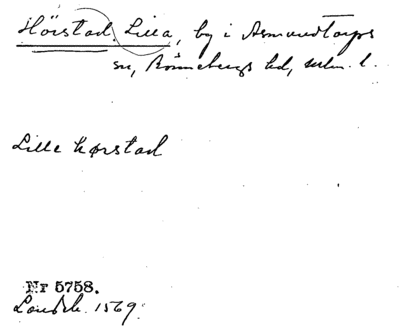 Hörstad, Lilla, by i Asmundtorps
sn, Rönnebergs hd, Mlm. l.
Lille Hørstad
Nr 5758.
Landsk. 1569.